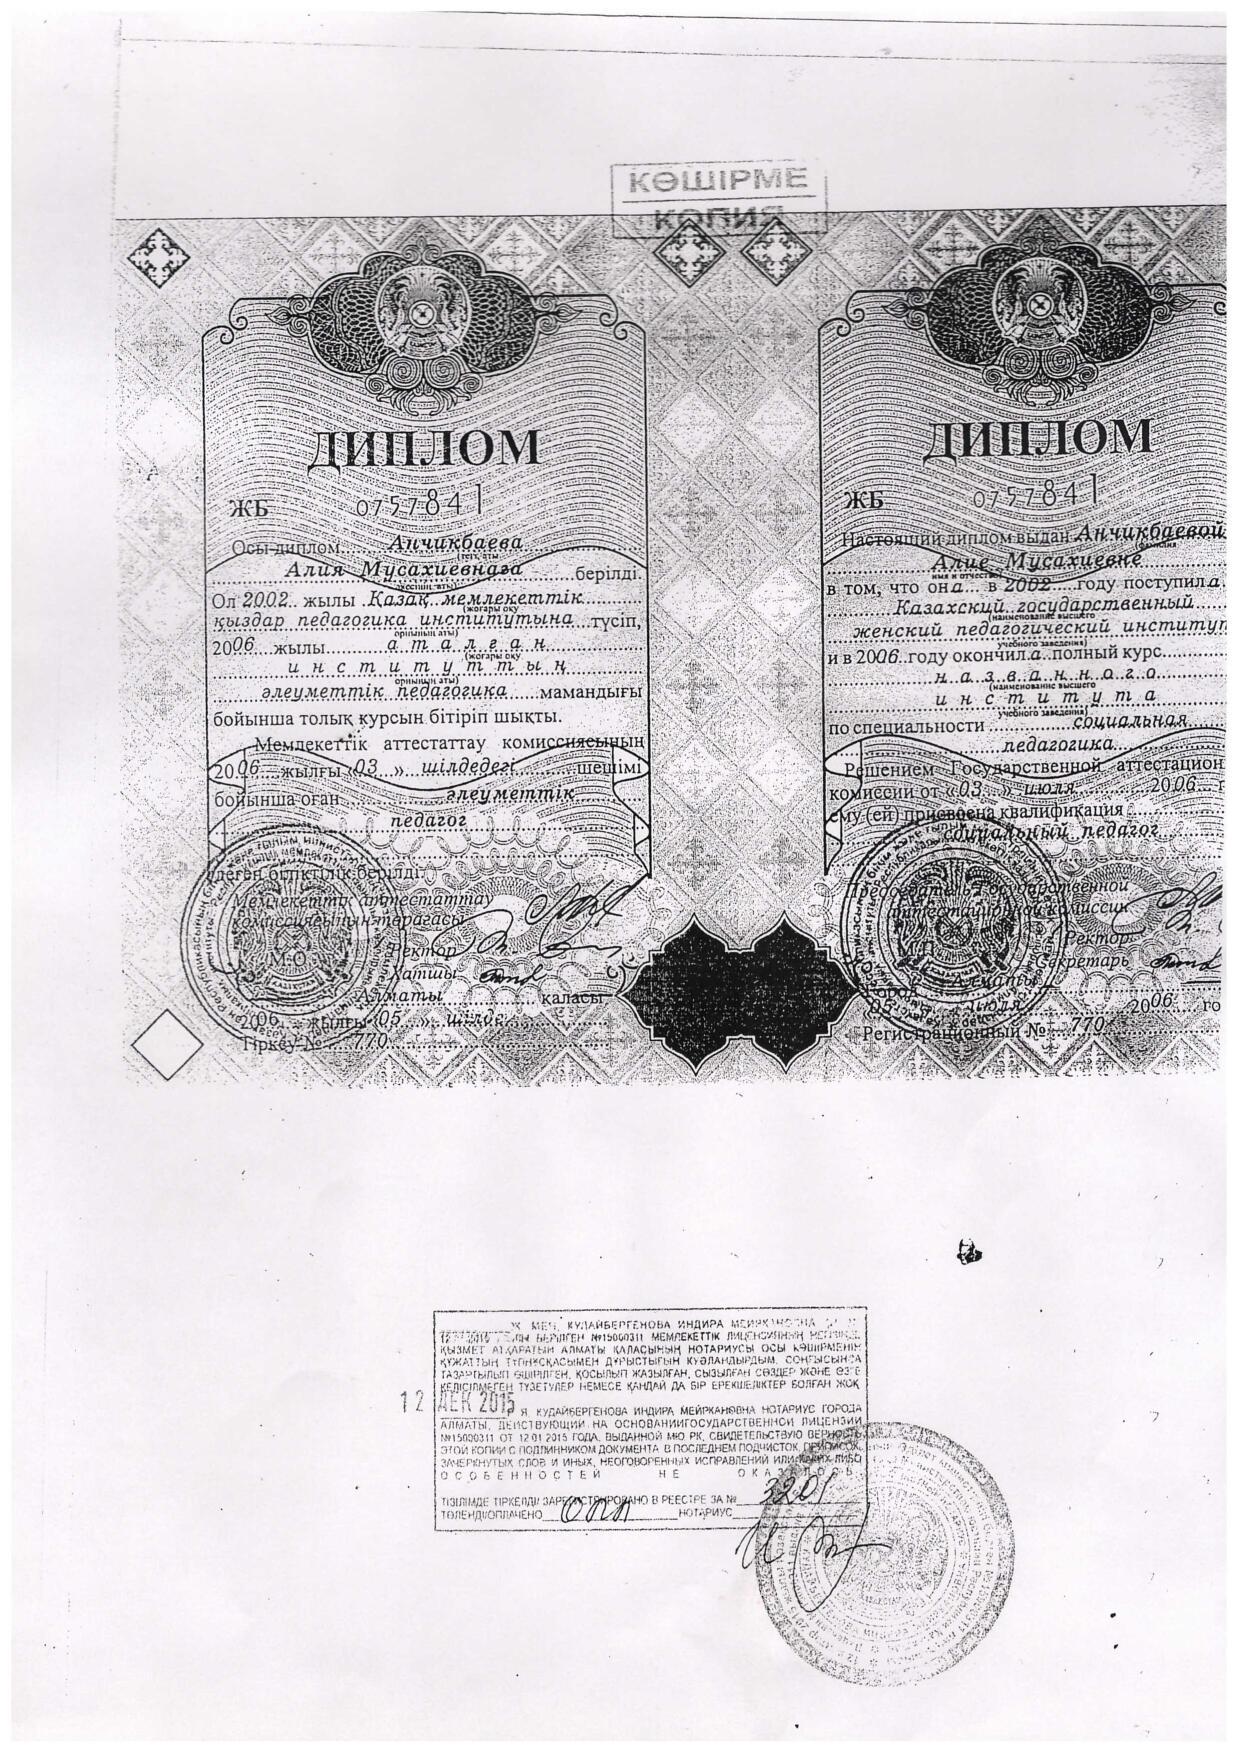 КӨШІРМЕ
КОПИЯ
ДИПЛОМ
ЖБ 0757841
Осы диплом Анчикбаева
(тегі, аты
Алия Мусахиевнаға берілді.
әкесінің аты)
Ол 2002 жылы Қазақ мемлекеттік
(жоғары оқу
қыздар педагогика институтына түсіп,
орнының аты)
2006 жылы аталған
(жоғары оқу
институттың
орнының аты)
әлеуметтік педагогика мамандығы
бойынша толық курсын бітіріп шықты.
Мемлекеттік аттестаттау комиссиясының
2006 жылғы «03» шілдедегі шешімі
бойынша оған әлеуметтік
педагог
деген біліктілік берілді.
Мемлекеттік аттестаттау
комиссиясының төрағасы
Ректор
Хатшы
М.О.
Алматы қаласы
2006 жылғы «05» шілде
Тіркеу № 770
ДИПЛОМ
ЖБ 0757841
Настоящий диплом выдан Анчикбаевой
фамилия
Алие Мусахиевне
имя и отчество
в том, что она в 2002 году поступила
Казахский государственный
(наименование высшего
женский педагогический институт
учебного заведения)
и в 2006 году окончила полный курс
названного
(наименование высшего
института
учебного заведения)
по специальности социальная
педагогика
Решением Государственной аттестацион
комиссии от «03» июля 2006 г
ему (ей) присвоена квалификация
социальный педагог
Председатель Государственной
аттестационной комиссии
Ректор
Секретарь
Город Алматы
«05» июля 2006 го
Регистрационный № 770
МЕН, КУДАЙБЕРГЕНОВА ИНДИРА МЕЙРКАНОВНА
БЕРІЛГЕН №15000311 МЕМЛЕКЕТТІК ЛИЦЕНЗИЯНЫҢ НЕГІЗІНДЕ
ҚЫЗМЕТ АТҚАРАТЫН АЛМАТЫ ҚАЛАСЫНЫҢ НОТАРИУСЫ ОСЫ КӨШІРМЕНІҢ
ҚҰЖАТТЫҢ ТҮПНҰСҚАСЫМЕН ДҰРЫСТЫҒЫН КУӘЛАНДЫРДЫМ. СОҢҒЫСЫНДА
ТАЗАРТЫЛЫП ӨШІРІЛГЕН, ҚОСЫЛЫП ЖАЗЫЛҒАН, СЫЗЫЛҒАН СӨЗДЕР ЖӘНЕ ӨЗГЕ
КЕЛІСІЛМЕГЕН ТҮЗЕТУЛЕР НЕМЕСЕ ҚАНДАЙ ДА БІР ЕРЕКШЕЛІКТЕР БОЛҒАН ЖОҚ
12 ДЕК 2015
Я, КУДАЙБЕРГЕНОВА ИНДИРА МЕЙРКАНОВНА НОТАРИУС ГОРОДА
АЛМАТЫ, ДЕЙСТВУЮЩИЙ НА ОСНОВАНИИГОСУДАРСТВЕННОЙ ЛИЦЕНЗИИ
№15000311 ОТ 12 01 2015 ГОДА, ВЫДАННОЙ МЮ РК, СВИДЕТЕЛЬСТВУЮ ВЕРНОСТЬ
ЭТОЙ КОПИИ С ПОДЛИННИКОМ ДОКУМЕНТА. В ПОСЛЕДНЕМ ПОДЧИСТОК, ПРИПИСОК,
ЗАЧЕРКНУТЫХ СЛОВ И ИНЫХ, НЕОГОВОРЕННЫХ ИСПРАВЛЕНИЙ ИЛИ КАКИХ-ЛИБО
ОСОБЕННОСТЕЙ НЕ ОКАЗАЛОСЬ.
ТІЗІЛІМДЕ ТІРКЕЛДІ/ ЗАРЕГИСТРИРОВАНО В РЕЕСТРЕ ЗА № 3201
ТӨЛЕНДІ/ОПЛАЧЕНО НОТАРИУС